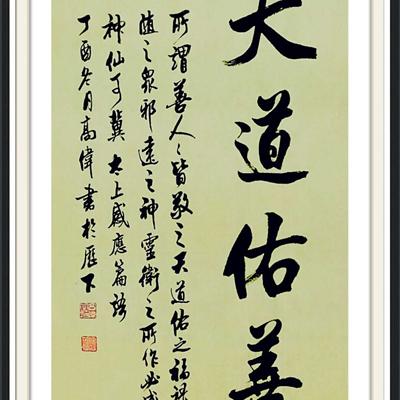 大道佑善
所謂善人〻皆敬之天道佑之福祿
隨之衆邪遠之神靈衛之所作必成
神仙可冀 太上感應篇語
丁酉冬月高偉書於歷下